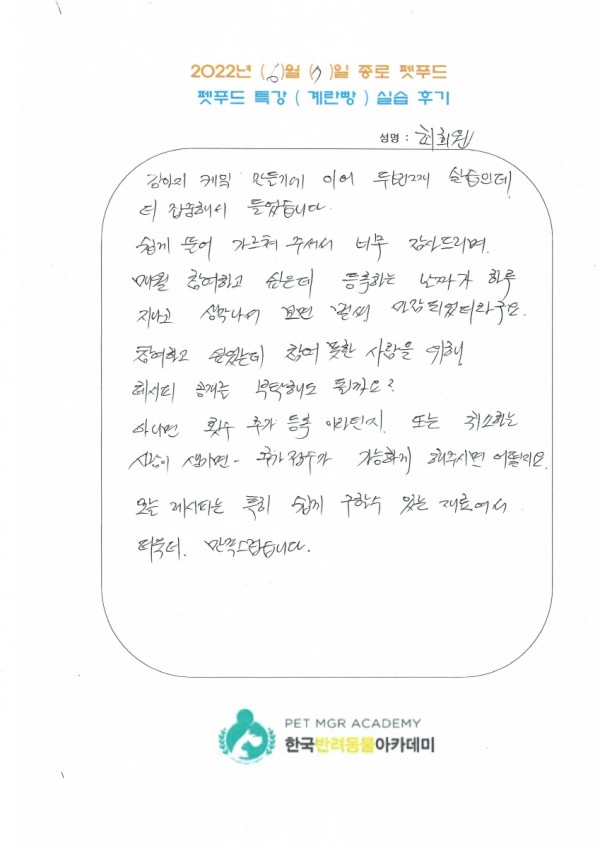 2022년 (6)월 (7)일 종로 펫푸드
펫푸드 특강 ( 계란빵 ) 실습 후기
성명 : 최희원
강아지 케잌 만들기에 이어 두번째 실습인데
더 집중해서 들었습니다.
쉽게 풀어 가르쳐 주셔서 너무 감사드리며.
매월 참여하고 싶은데 등록하는 날짜가 하루
지나고 생각나서 보면 벌써 마감 되었더라구요.
참여하고 싶었는데 참여 못한 사람을 위해
레시피 공개는 부탁해도 될까요?
아니면 횟수 추가 등록 이라던지. 또는 취소하는
사람이 생기면- 추가접수가 가능하게 해주시면 어떨지요.
오늘 레시피는 특히 쉽게 구할수 있는 재료여서
더욱더. 만족스럽습니다.
PET MGR ACADEMY
한국반려동물아카데미